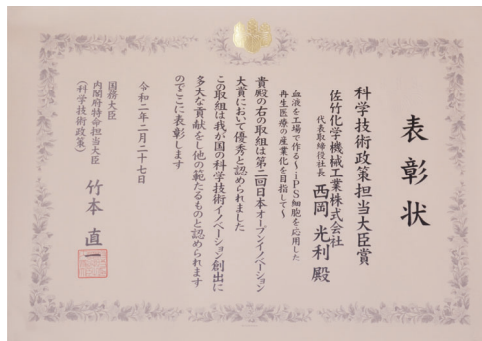 表彰状
科学技術政策担当大臣賞
佐竹化学機械工業株式会社
代表取締役社長 西岡 光利 殿
血液を工場で作る~iPS細胞を応用した
再生医療の産業化を目指して~
貴殿の右の取組は第二回日本オープンイノベーション
大賞において優秀と認められました
この取組は我が国の科学技術イノベーション創出に
多大な貢献をし他の範たるものと認められます
のでここに表彰します
令和二年二月二十七日
国務大臣
内閣府特命担当大臣
(科学技術政策)
竹本 直一